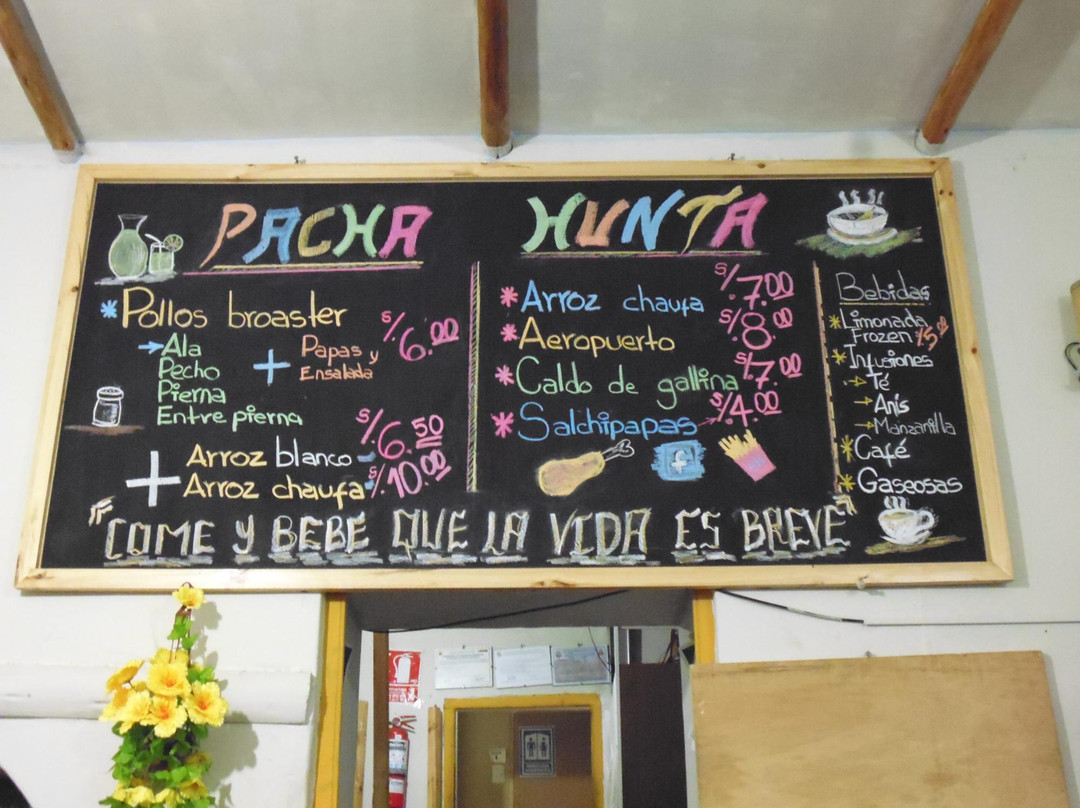 PACHA HUNTA
* Pollos broaster S/6.00
→ Ala
Pecho
Pierna
Entre pierna
+ Papas y
Ensalada
+ Arroz blanco - S/6.50
Arroz chaufa - S/10.00
* Arroz chaufa S/7.00
* Aeropuerto S/8.00
* Caldo de gallina S/7.00
* Salchipapas → S/4.00
f
Bebidas
* Limonada
Frozen S/5.00
* Infusiones
→ Té
→ Anís
→ Manzanilla
* Café
* Gaseosas
"COME Y BEBE QUE LA VIDA ES BREVE"